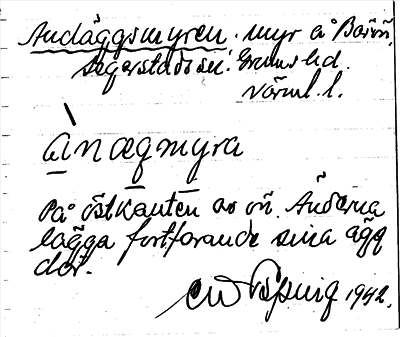 Andäggsmyren. myr å Barön,
Segerstads sn. Grums hd.
Värml. l.
ànæqmyra
På östkanten av ön. Änderna
lägga fortfarande sina ägg
där.
1942.